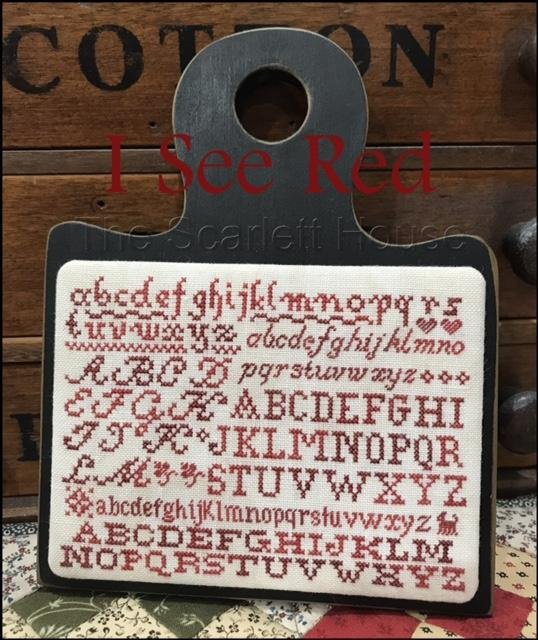 COTTON
I See Red
The Scarlett House
abcdefghijklmnopqrs
tuvwxyz abcdefghijklmno
ABCD pqrstuvwxyz
EFGH ABCDEFGHI
IJK JKLMNOPQR
LM STUVWXYZ
abcdefghijklmnopqrstuvwxyz
ABCDEFGHIJKLM
NOPQRSTUVWXYZ